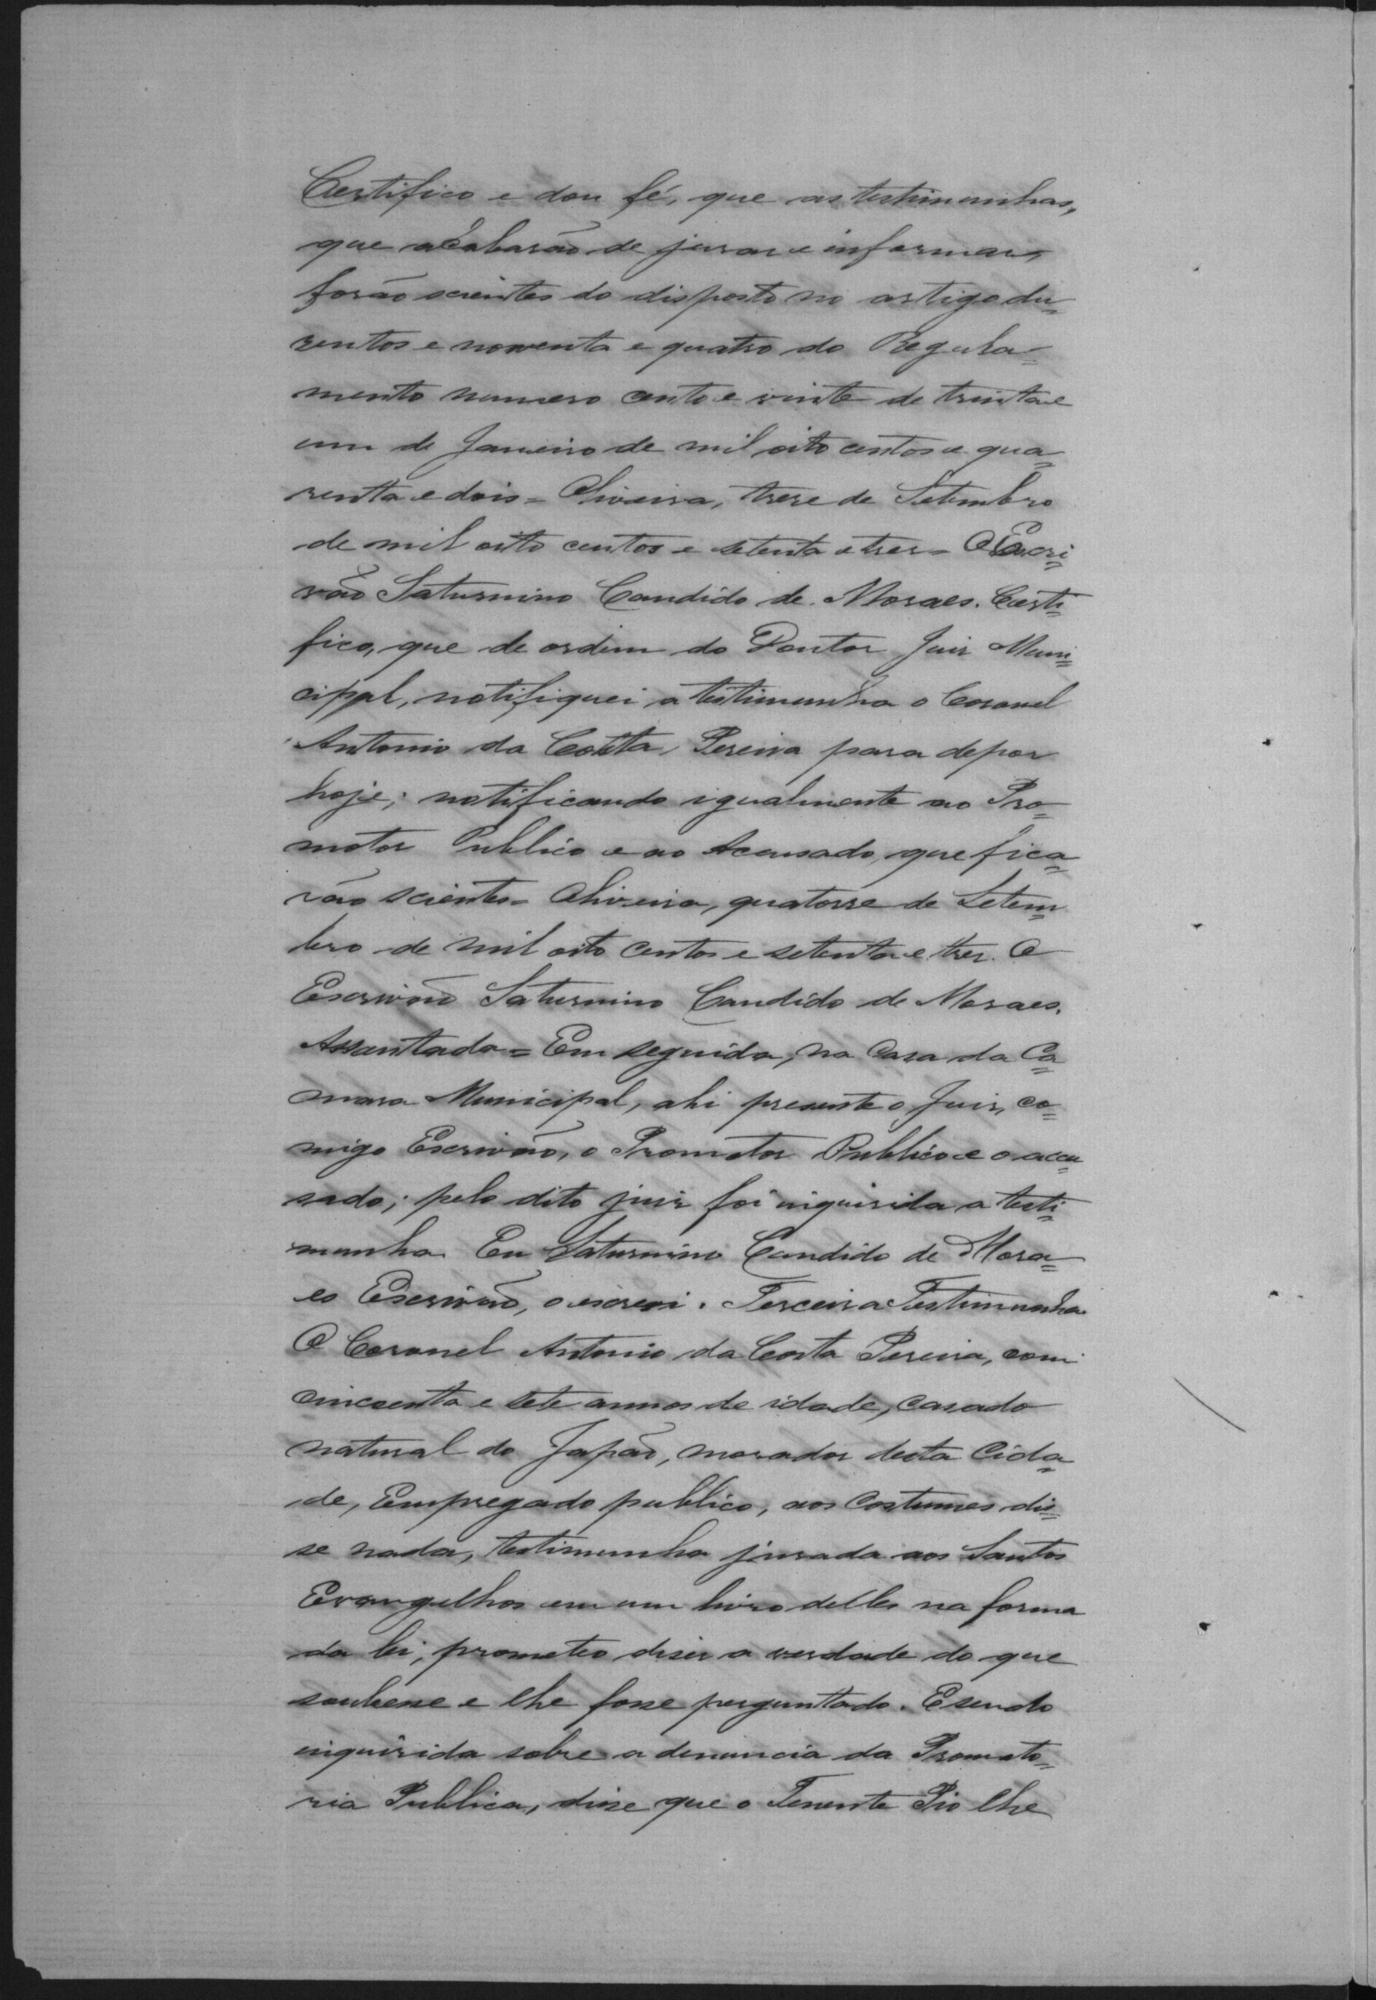 Certifico e dou fé, que as testimunhas,
que acabarão de jurar e informar,
forão scientes do disposto no artigo du=
zentos e noventa e quatro do Regula=
mento numero cento e vinte de trinta e
um de Janeiro de mil oito centos e qua=
renta e dois = Oliveira, treze de Setembro
de mil oito centos e setenta e tres = O Escri=
vão Saturnino Candido de Moraes. Certi=
fico, que de ordem do Doutor Juiz Muni=
cipal, notifiquei a testimunha o Coronel
Antonio da Costa Pereira para depor
hoje; notificando igualmente ao Pro=
motor Publico e ao Accusado, que fica=
rão scientes = Oliveira, quatorze de Setem=
bro de mil oito centos e setenta e tres. O
Escrivão Saturnino Candido de Moraes.
Assentada = Em seguida, na Casa da Ca=
mara Municipal, ahi presente o Juiz, co=
migo Escrivão, o Promotor Publico e o accu=
sado; pelo dito juiz foi inquirida a testi=
munha. Eu Saturnino Candido de Mora=
es Escrivão, o escrevi. Terceira Testimunha
O Coronel Antonio da Costa Pereira, com
cincoenta e sete annos de idade, casado
natural do Japão, morador desta Cida=
de, Empregado publico, aos costumes dis=
se nada, testimunha jurada aos Santos
Evangelhos em um livro delles na forma
da lei, prometeo diser a verdade do que
soubesse e lhe fosse perguntado. E sendo
inquirida sobre a denuncia da Promoto=
ria Publica, disse que o Tenente Pio lhe